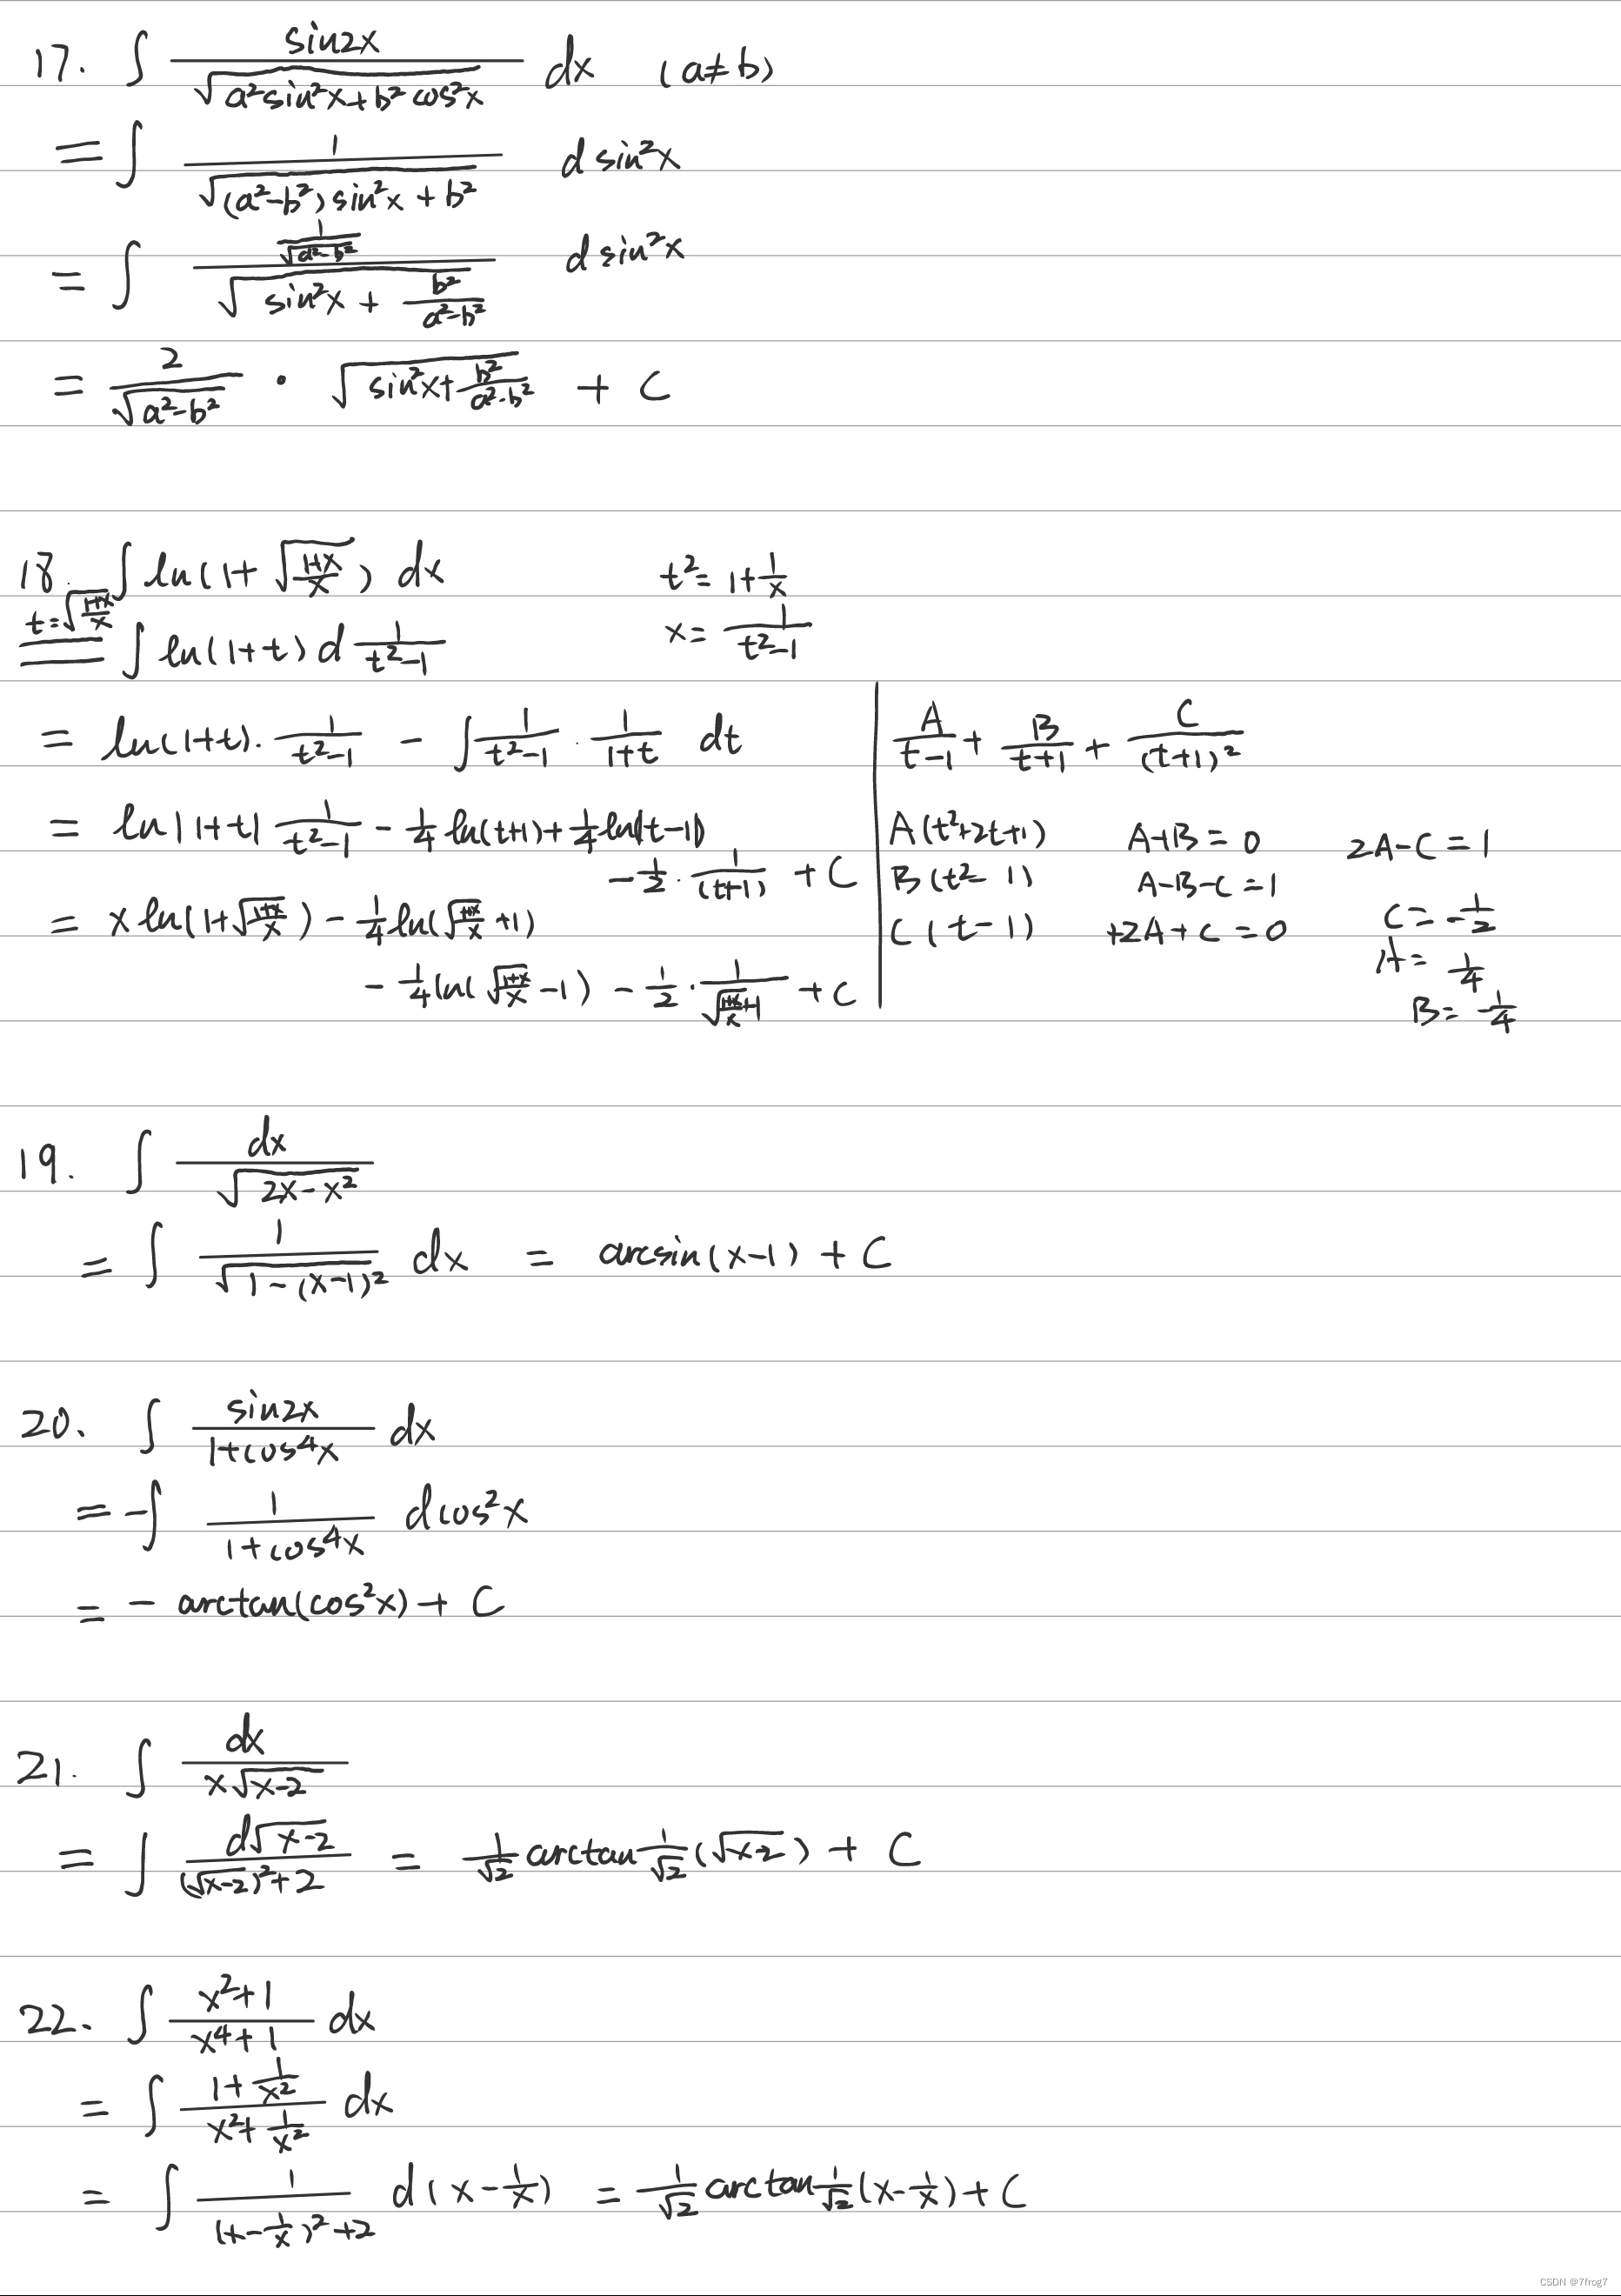 17. ∫ sin2x / √(a²sin²x+b²cos²x) dx (a≠b)
= ∫ 1 / √((a²-b²)sin²x+b²) d sin²x
= ∫ (1/√(a²-b²)) / √(sin²x + b²/(a²-b²)) d sin²x
= 2/√(a²-b²) · √(sin²x + b²/(a²-b²)) + C
18. ∫ ln(1+√((1+x)/x)) dx t² = 1+1/x
t=√((1+x)/x) = ∫ ln(1+t) d 1/(t²-1) x = 1/(t²-1)
= ln(1+t)· 1/(t²-1) - ∫ 1/(t²-1) · 1/(1+t) dt
= ln|1+t| 1/(t²-1) - 1/4 ln(t+1) + 1/4 ln|t-1|)
- 1/2 · 1/(t+1) + C
= x ln(1+√((1+x)/x)) - 1/4 ln(√((1+x)/x) +1)
- 1/4 ln(√((1+x)/x) -1) - 1/2 · 1/(√((1+x)/x)+1) + C
A/(t-1) + B/(t+1) + C/(t+1)²
A(t²+2t+1) A+B=0 2A-C=1
B(t²-1) A-B-C=1
C(t-1) +2A+C=0 C=-1/2
A= 1/4
B=-1/4
19. ∫ dx / √(2x-x²)
= ∫ 1 / √(1-(x-1)²) dx = arcsin(x-1) + C
20. ∫ sin2x / (1+cos⁴x) dx
= -∫ 1 / (1+cos⁴x) dcos²x
= - arctan(cos²x) + C
21. ∫ dx / (x√(x-2))
= ∫ d√(x-2) / ((√(x-2))²+2) = 1/√2 arctan 1/√2 (√(x-2)) + C
22. ∫ (x²+1)/(x⁴+1) dx
= ∫ (1+1/x²)/(x²+1/x²) dx
= ∫ 1/((x-1/x)²+2) d(x-1/x) = 1/√2 arctan 1/√2 (x-1/x) + C
CSDN @7frog7